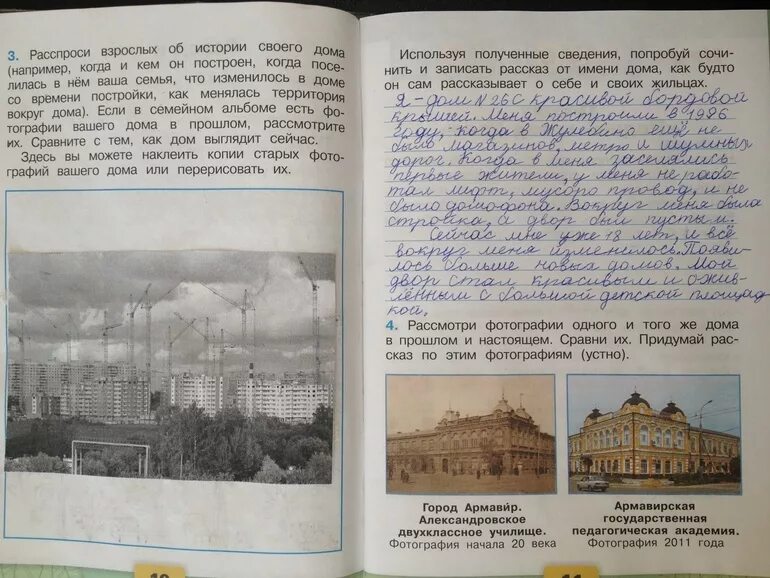 3. Расспроси взрослых об истории своего дома
(например, когда и кем он построен, когда посе-
лилась в нём ваша семья, что изменилось в доме
со времени постройки, как менялась территория
вокруг дома). Если в семейном альбоме есть фо-
тографии вашего дома в прошлом, рассмотрите
их. Сравните с тем, как дом выглядит сейчас.
Здесь вы можете наклеить копии старых фото-
графий вашего дома или перерисовать их.
Используя полученные сведения, попробуй сочи-
нить и записать рассказ от имени дома, как будто
он сам рассказывает о себе и своих жильцах.
Я - дом N 26 С красивой бордовой
крышей. Меня построили в 1986
году. Когда в Жулебино ещё не
было магазинов, метро и шумных
дорог. Когда в меня заселялись
первые жители, у меня не рабо-
тал лифт, мусоро провод, и не
было домофона. Вокруг меня была
стройка, а двор был пустым.
Сейчас мне уже 18 лет, и всё
вокруг меня изменилось. Появи-
лось больше новых домов. Мой
двор стал красивым и ожив-
лённым с большой детской площад
кой.
4. Рассмотри фотографии одного и того же дома
в прошлом и настоящем. Сравни их. Придумай рас-
сказ по этим фотографиям (устно).
Город Армави́р.
Александровское
двухклассное училище.
Фотография начала 20 века
Армавирская
государственная
педагогическая академия.
Фотография 2011 года